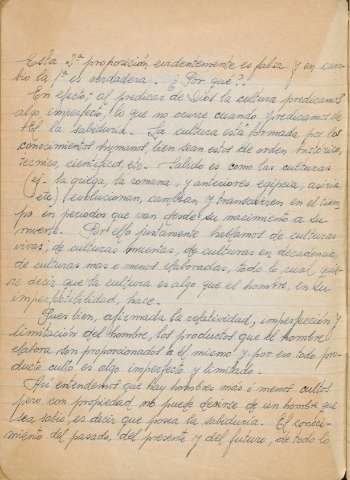 Esta 2ª proposición evidentemente es falsa y en cam-
bio la 1ª es verdadera. ¿Por qué?.
En efecto: al predicar de Dios la cultura predicamos
algo imperfecto, lo que no ocurre cuando predicamos de
Él la Sabiduría. La cultura está formada por los
conocimientos humanos, bien sean estos de orden histórico,
técnico, científico, etc. Sabido es como las culturas
(ej. la griega, la romana, y anteriores egipcia, asiria,
etc) evolucionan, cambian y transcurren en el tiem-
po en períodos que van desde su nacimiento a su
muerte. Por ello justamente hablamos de culturas
vivas, de culturas muertas, de culturas en decadencia,
de culturas mas o menos elaboradas, todo lo cual quie-
re decir que la cultura es algo que el hombre, en su
imperfectibilidad, hace.
Pues bien, afirmada la relatividad, imperfección y
limitación del hombre, los productos que el hombre
elabora son proporcionados a él mismo y por eso todo pro-
ducto culto es algo imperfecto y limitado.
Así entendemos que hay hombres más o menos cultos
pero con propiedad no puede decirse de un hombre que
sea sabio, es decir que posea la sabiduría. El conoci-
miento del pasado, del presente y del futuro, de todo lo